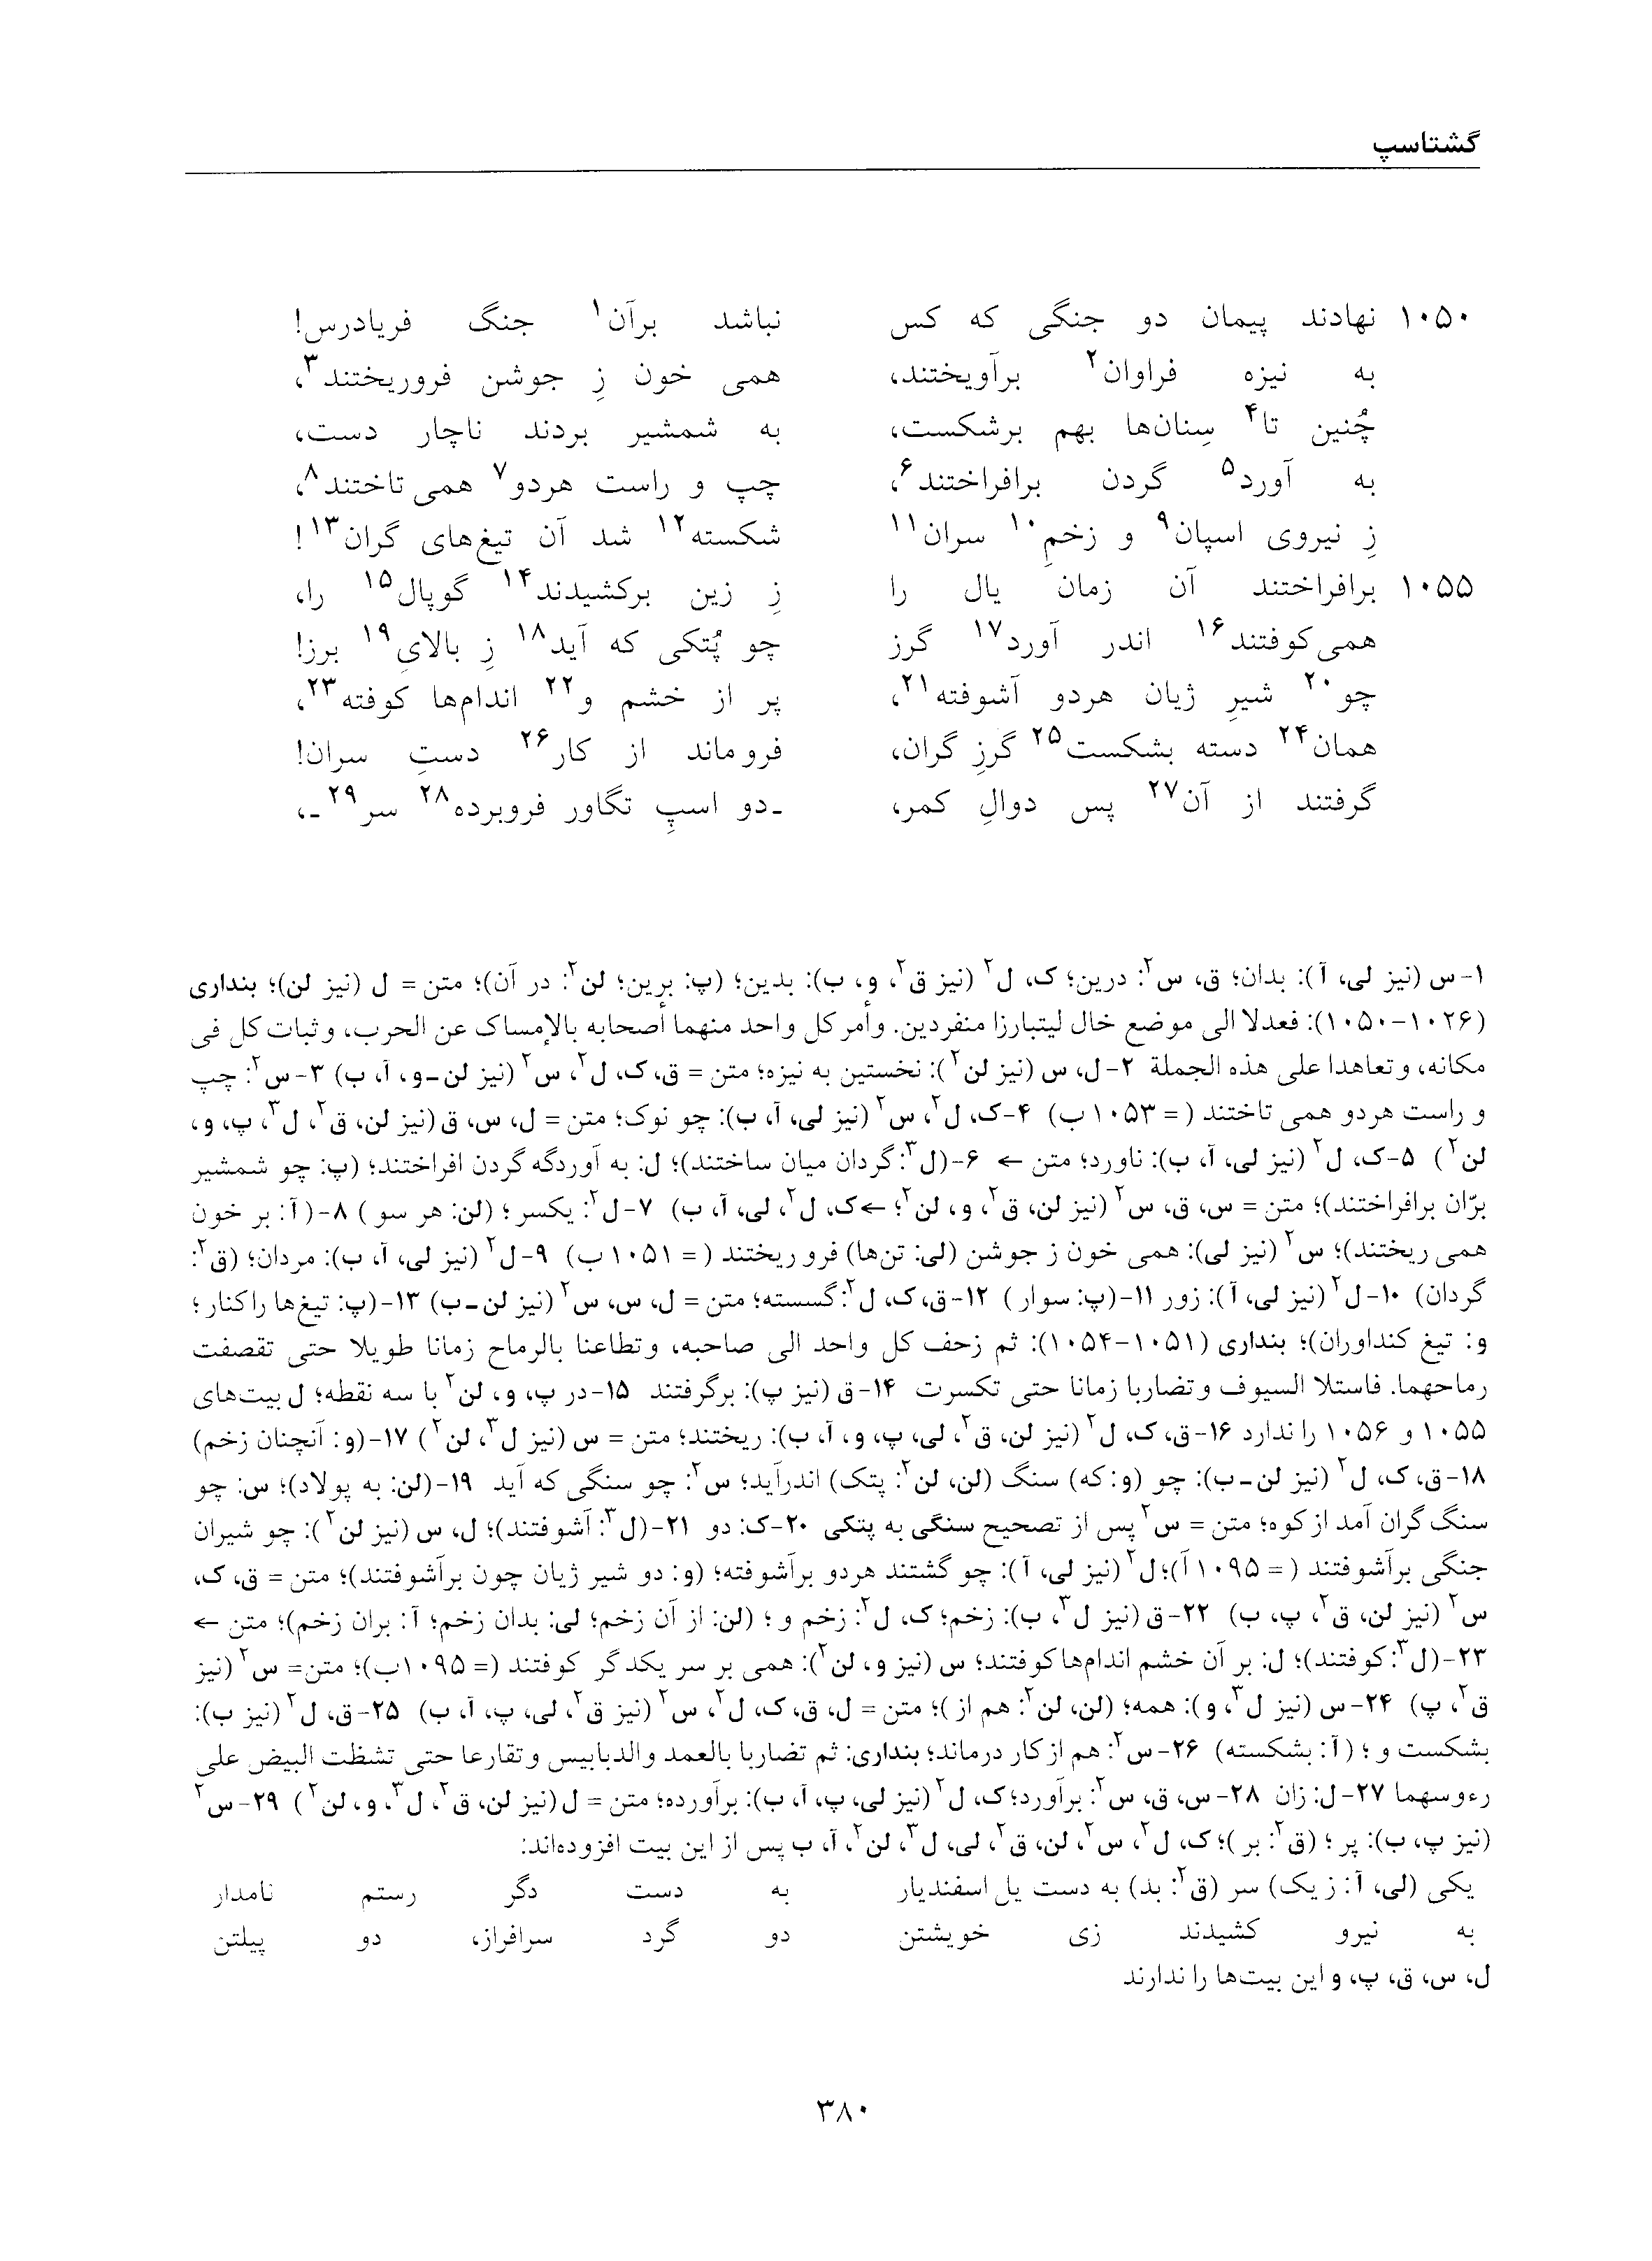 گشتاسپ
۱۰۵۰ نهادند پیمان دو جنگی که کس نباشد برآن۱ جنگ فریادرس!
به نیزه فراوان۲ برآویختند، همی خون زِ جوشن فروریختند۳،
چُنین تا۴ سِنان‌ها بهم برشکست، به شمشیر بردند ناچار دست،
به آورد۵ گردن برافراختند۶، چپ و راست هردو۷ همی تاختند۸،
زِ نیروی اسپان۹ و زخمِ۱۰ سران۱۱ شکسته۱۲ شد آن تیغ‌های گران۱۳!
۱۰۵۵ برافراختند آن زمان یال را زِ زین برکشیدند۱۴ گوپال۱۵ را،
همی‌کوفتند۱۶ اندر آورد۱۷ گرز چو پُتکی که آید۱۸ زِ بالایِ۱۹ برز!
چو۲۰ شیرِ ژیان هردو آشوفته۲۱، پر از خشم و۲۲ اندام‌ها کوفته۲۳،
همان۲۴ دسته بشکست۲۵ گرزِ گران، فروماند از کار۲۶ دستِ سران!
گرفتند از آن۲۷ پس دوالِ کمر، ـ‌دو اسپِ تگاور فروبرده۲۸ سر۲۹ ـ،
۱-س (نیز لی، آ): بدان؛ ق، س۲: درین؛ ک، ل۲ (نیز ق۲، و، ب): بدین؛ (پ: برین؛ لن۲: در آن)؛ متن = ل (نیز لن)؛ بنداری
(۱۰۲۶-۱۰۵۰): فعدلا الی موضع خال لیتبارزا منفردین. وأمر کل واحد منهما أصحابه بالإمساک عن الحرب، و ثبات کل فی
مکانه، و تعاهدا علی هذه الجملة ۲-ل، س (نیز لن۲): نخستین به نیزه؛ متن = ق، ک، ل۲، س۲ (نیز لن-و، آ، ب) ۳-س۲: چپ
و راست هردو همی تاختند (= ۱۰۵۳ ب) ۴-ک، ل۲، س۲ (نیز لی، آ، ب): چو نوک؛ متن = ل، س، ق (نیز لن، ق۲، ل۳، پ، و،
لن۲) ۵-ک، ل۲ (نیز لی، آ، ب): ناورد؛ متن ← ۶-(ل۳: گردان میان ساختند)؛ ل: به آوردگه گردن افراختند؛ (پ: چو شمشیر
برّان برافراختند)؛ متن = س، ق، س۲ (نیز لن، ق۲، و، لن۲؛ ← ک، ل۲، لی، آ، ب) ۷-ل۲: یکسر؛ (لن: هر سو) ۸-(آ: بر خون
همی ریختند)؛ س۲ (نیز لی): همی خون ز جوشن (لی: تن‌ها) فرو ریختند (= ۱۰۵۱ ب) ۹-ل۲ (نیز لی، آ، ب): مردان؛ (ق۲:
گردان) ۱۰-ل۲ (نیز لی، آ): زور ۱۱-(پ: سوار) ۱۲-ق، ک، ل۲: گسسته؛ متن = ل، س، س۲ (نیز لن-ب) ۱۳-(پ: تیغ‌ها را کنار؛
و: تیغ کنداوران)؛ بنداری (۱۰۵۱-۱۰۵۴): ثم زحف کل واحد الی صاحبه، و تطاعنا بالرماح زمانا طویلا حتی تقصفت
رماحهما. فاستلا السیوف و تضاربا زمانا حتی تکسرت ۱۴-ق (نیز پ): برگرفتند ۱۵-در پ، و، لن۲ با سه نقطه؛ ل بیت‌های
۱۰۵۵ و ۱۰۵۶ را ندارد ۱۶-ق، ک، ل۲ (نیز لن، ق۲، لی، پ، و، آ، ب): ریختند؛ متن = س (نیز ل۳، لن۲) ۱۷-(و: آنچنان زخم)
۱۸-ق، ک، ل۲ (نیز لن-ب): چو (و: که) سنگ (لن، لن۲: پتک) اندرآید؛ س۲: چو سنگی که آید ۱۹-(لن: به پولاد)؛ س: چو
سنگ گران آمد از کوه؛ متن = س۲ پس از تصحیح سنگی به پتکی ۲۰-ک: دو ۲۱-(ل۳: آشوفتند)؛ ل، س (نیز لن۲): چو شیران
جنگی برآشوفتند (= ۱۰۹۵ آ)؛ ل۲ (نیز لی، آ): چو گشتند هردو برآشوفته؛ (و: دو شیر ژیان چون برآشوفتند)؛ متن = ق، ک،
س۲ (نیز لن، ق۲، پ، ب) ۲۲-ق (نیز ل۳، ب): زخم؛ ک، ل۲: زخم و؛ (لن: از آن زخم؛ لی: بدان زخم؛ آ: بران زخم)؛ متن ←
۲۳-(ل۳: کوفتند)؛ ل: بر آن خشم اندام‌ها کوفتند؛ س (نیز و، لن۲): همی بر سر یکدگر کوفتند (= ۱۰۹۵ب)؛ متن= س۲ (نیز
ق۲، پ) ۲۴-س (نیز ل۳، و): همه؛ (لن، لن۲: هم از)؛ متن = ل، ق، ک، ل۲، س۲ (نیز ق۲، لی، پ، آ، ب) ۲۵-ق، ل۲ (نیز ب):
بشکست و؛ (آ: بشکسته) ۲۶-س۲: هم از کار درماند؛ بنداری: ثم تضاربا بالعمد والدبابیس و تقارعا حتی تشظت البیض علی
رءوسهما ۲۷-ل: زان ۲۸-س، ق، س۲: برآورد؛ ک، ل۲ (نیز لی، پ، آ، ب): برآورده؛ متن = ل (نیز لن، ق۲، ل۳، و، لن۲) ۲۹-س۲
(نیز پ، ب): پر؛ (ق۲: بر)؛ ک، ل۲، س۲، لن، ق۲، لی، ل۳، لن۲، آ، ب پس از این بیت افزوده‌اند:
یکی (لی، آ: ز یک) سر (ق۲: بد) به دست یل اسفندیار به دست دگر رستم نامدار
به نیرو کشیدند زی خویشتن دو گرد سرافراز، دو پیلتن
ل، س، ق، پ، و این بیت‌ها را ندارند
۳۸۰